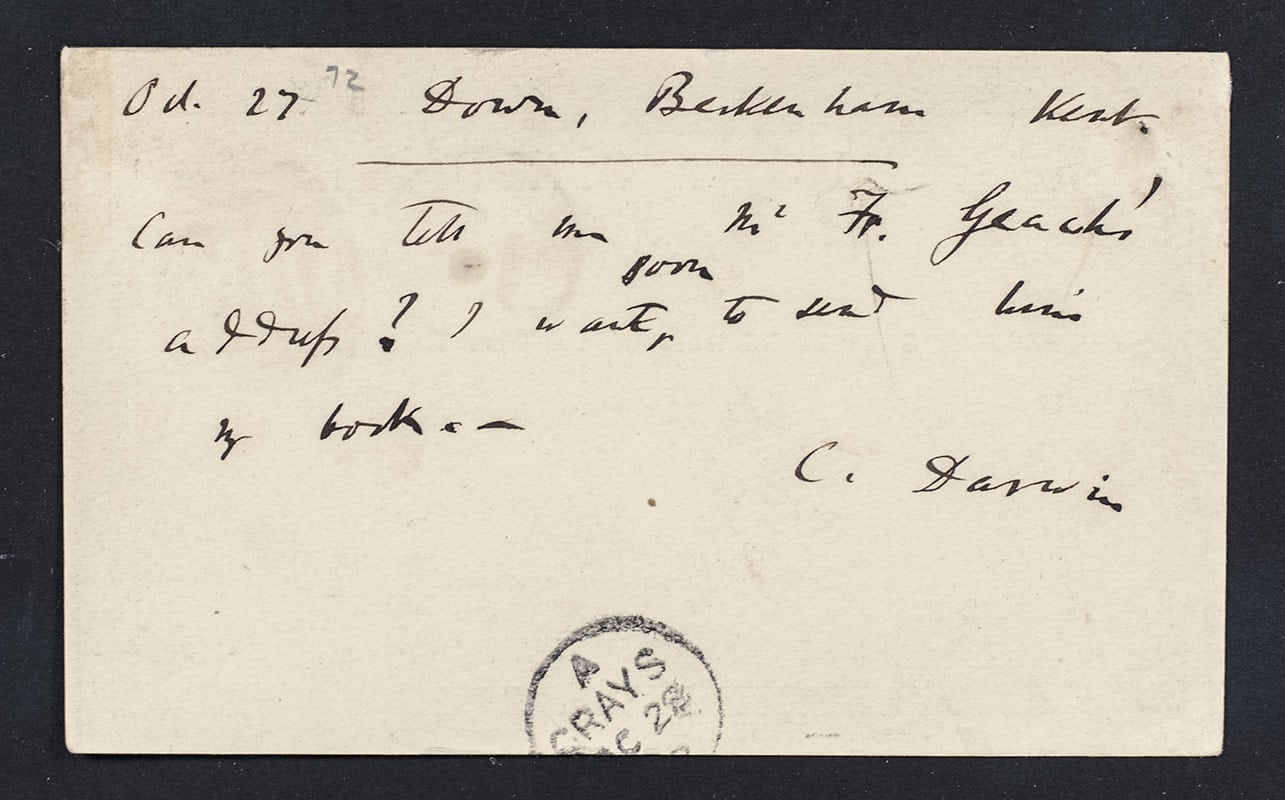 Oct. 27. 72 Down, Beckenham Kent.
Can you tell me Mr F. Geach's
soon
address? I want, to send him
my book.—
C. Darwin
A
GRAYS
28